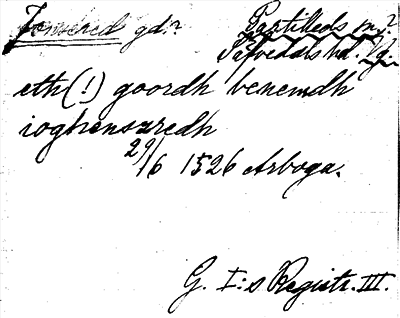 Jonsered gd.?
Partilleds sn.?
Säfvedals hd. Vg.
eth(!) goordh benemdh
ioghenszredh
29/6 1526 Arboga.
G. I:s Registr. III.